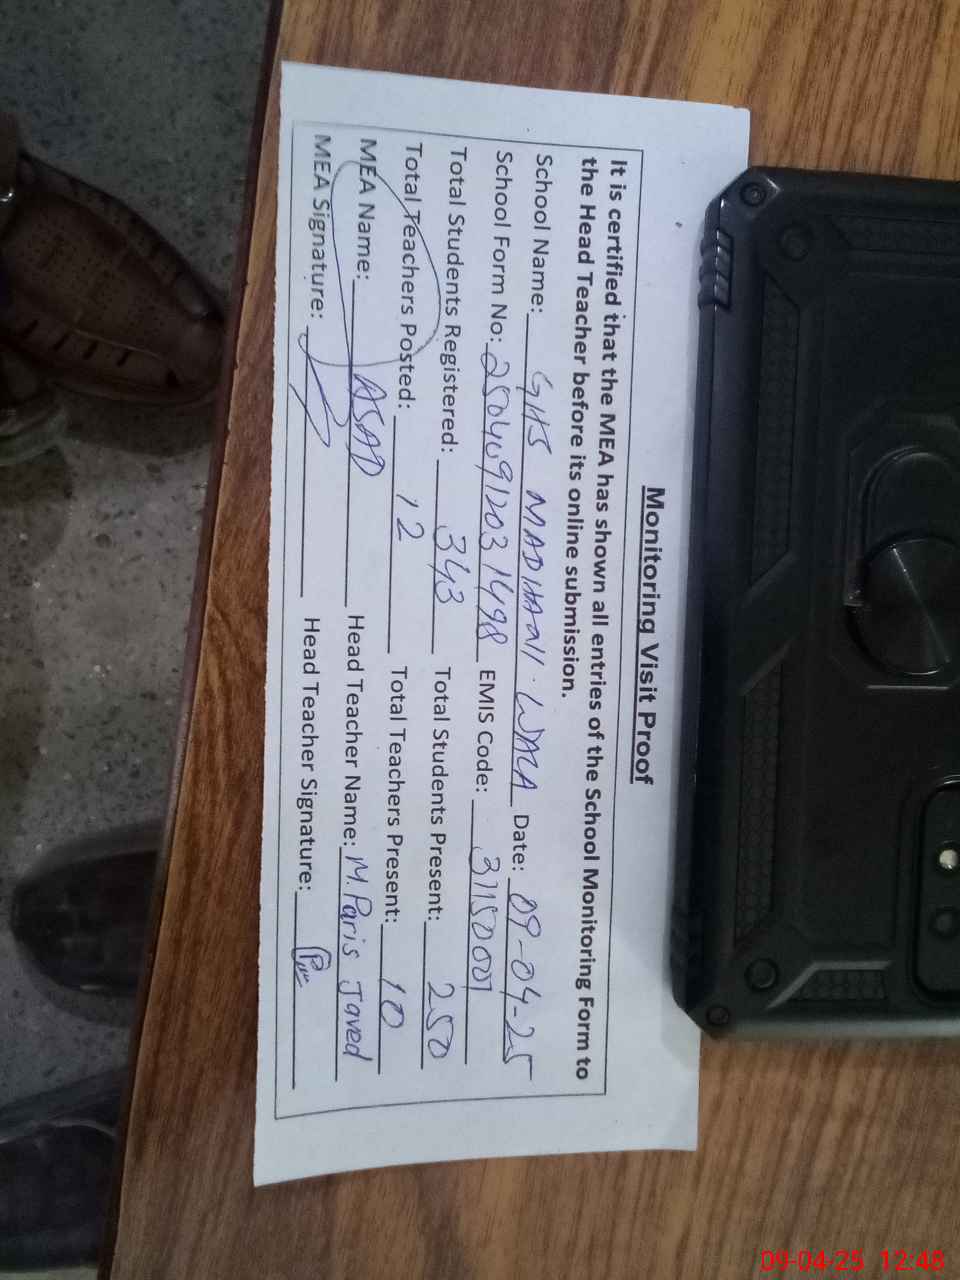 Monitoring Visit Proof
It is certified that the MEA has shown all entries of the School Monitoring Form to
the Head Teacher before its online submission.
School Name: GHS MADHAall. WALA Date: 09-04-25
School Form No: 25040912031498 EMIS Code: 31150001
Total Students Registered: 343 Total Students Present: 250
Total Teachers Posted: 12 Total Teachers Present: 10
MEA Name: ASAD Head Teacher Name: M. Paris Javed
MEA Signature: Head Teacher Signature:
09-04-25 12:48